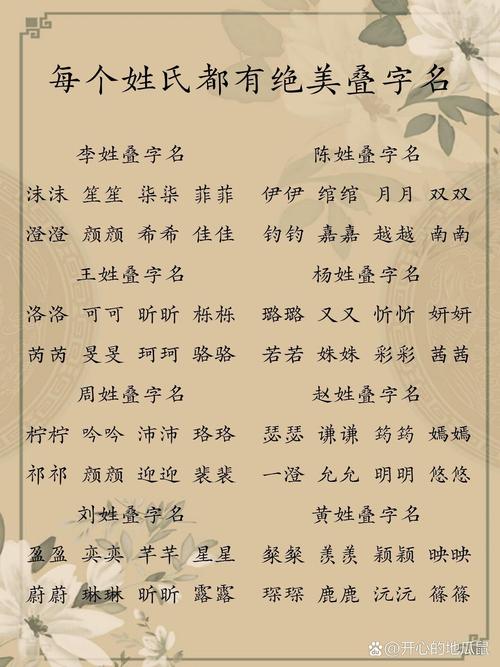 每个姓氏都有绝美叠字名
李姓叠字名
沫沫 笙笙 柒柒 菲菲
澄澄 颜颜 希希 佳佳
陈姓叠字名
伊伊 绾绾 月月 双双
钧钧 嘉嘉 越越 南南
王姓叠字名
洛洛 可可 昕昕 栎栎
芮芮 旻旻 珂珂 骆骆
杨姓叠字名
璐璐 又又 忻忻 妍妍
若若 姝姝 彩彩 茜茜
周姓叠字名
柠柠 吟吟 沛沛 珞珞
祁祁 颜颜 迎迎 裴裴
赵姓叠字名
瑟瑟 谦谦 筠筠 嫣嫣
一澄 允允 明明 悠悠
刘姓叠字名
盈盈 奕奕 芊芊 星星
蔚蔚 琳琳 昕昕 露露
黄姓叠字名
粲粲 羡羡 颖颖 映映
琛琛 鹿鹿 沅沅 篠篠
Baidu百家号@开心的地瓜鼠